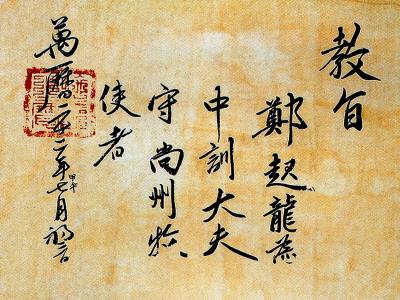 教旨
鄭起龍爲
中訓大夫
守尚州牧
使者
萬曆二十二年甲午七月初